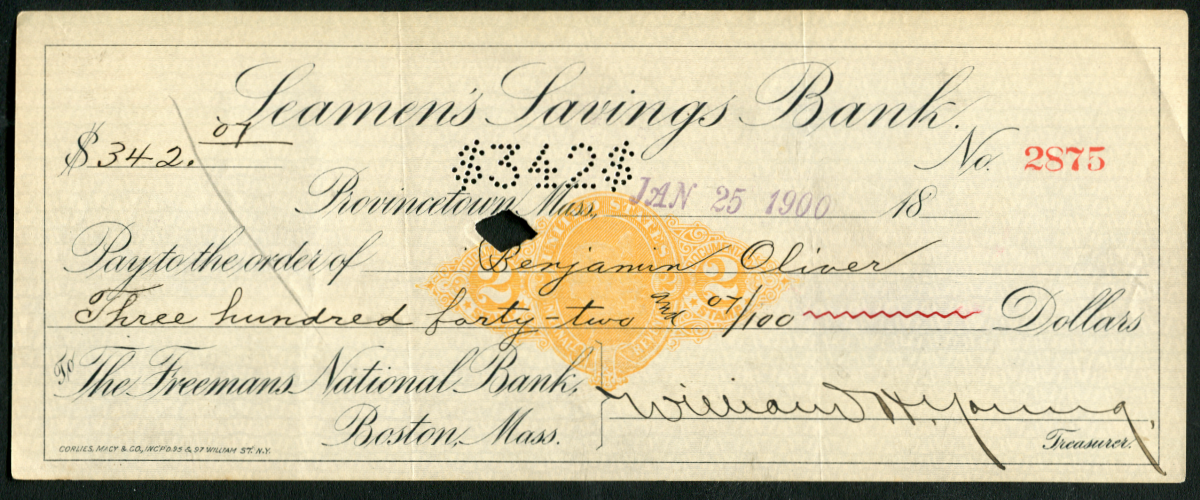 Seamen's Savings Bank.
$ 342. 07
$342$
No. 2875
Provincetown, Mass, JAN 25 1900 18
Pay to the order of Benjamin Oliver
Three hundred forty-two and 07/100 Dollars
UNITED STATES
2 2
To The Freemans National Bank,
Boston, Mass.
William H. Young
Treasurer.
CORLIES, MACY & CO., INC'P'D. 95 & 97 WILLIAM ST. N.Y.